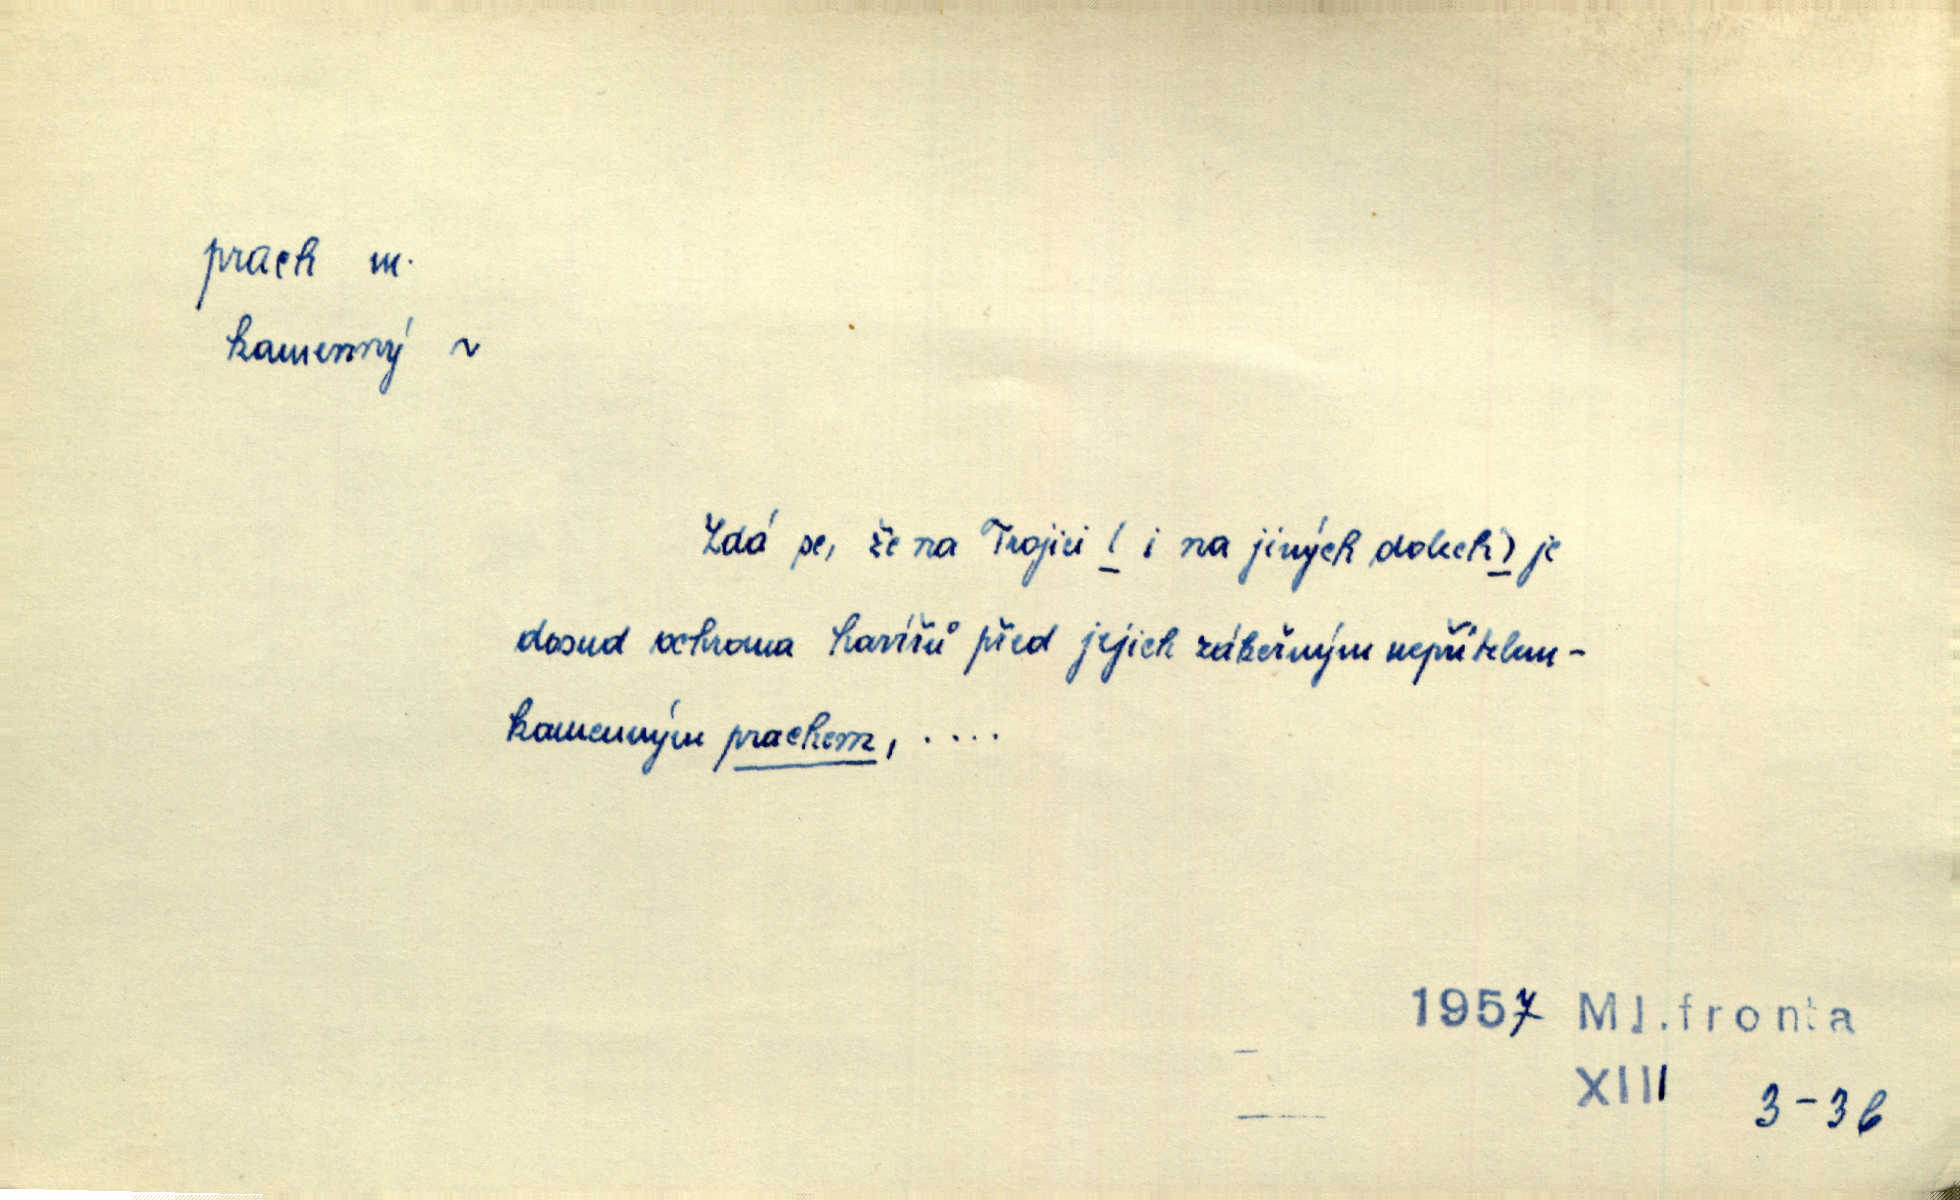 prach m.
kamenný ~
Zdá se, že na Trojici ( i na jiných dolech) je
dosud ochrana havířů před jejich zákeřným nepřítelem -
kamenným prachem, ....
1957 Ml.fronta
XIII 3-3b